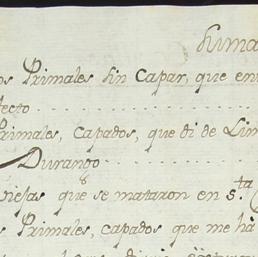 Suma
os Primales sin Capar, que en
tecto
Primales, Capados, que di de Lim
Durango
Viejas que se mataron en S.ta C
s Primales, capados que me hà